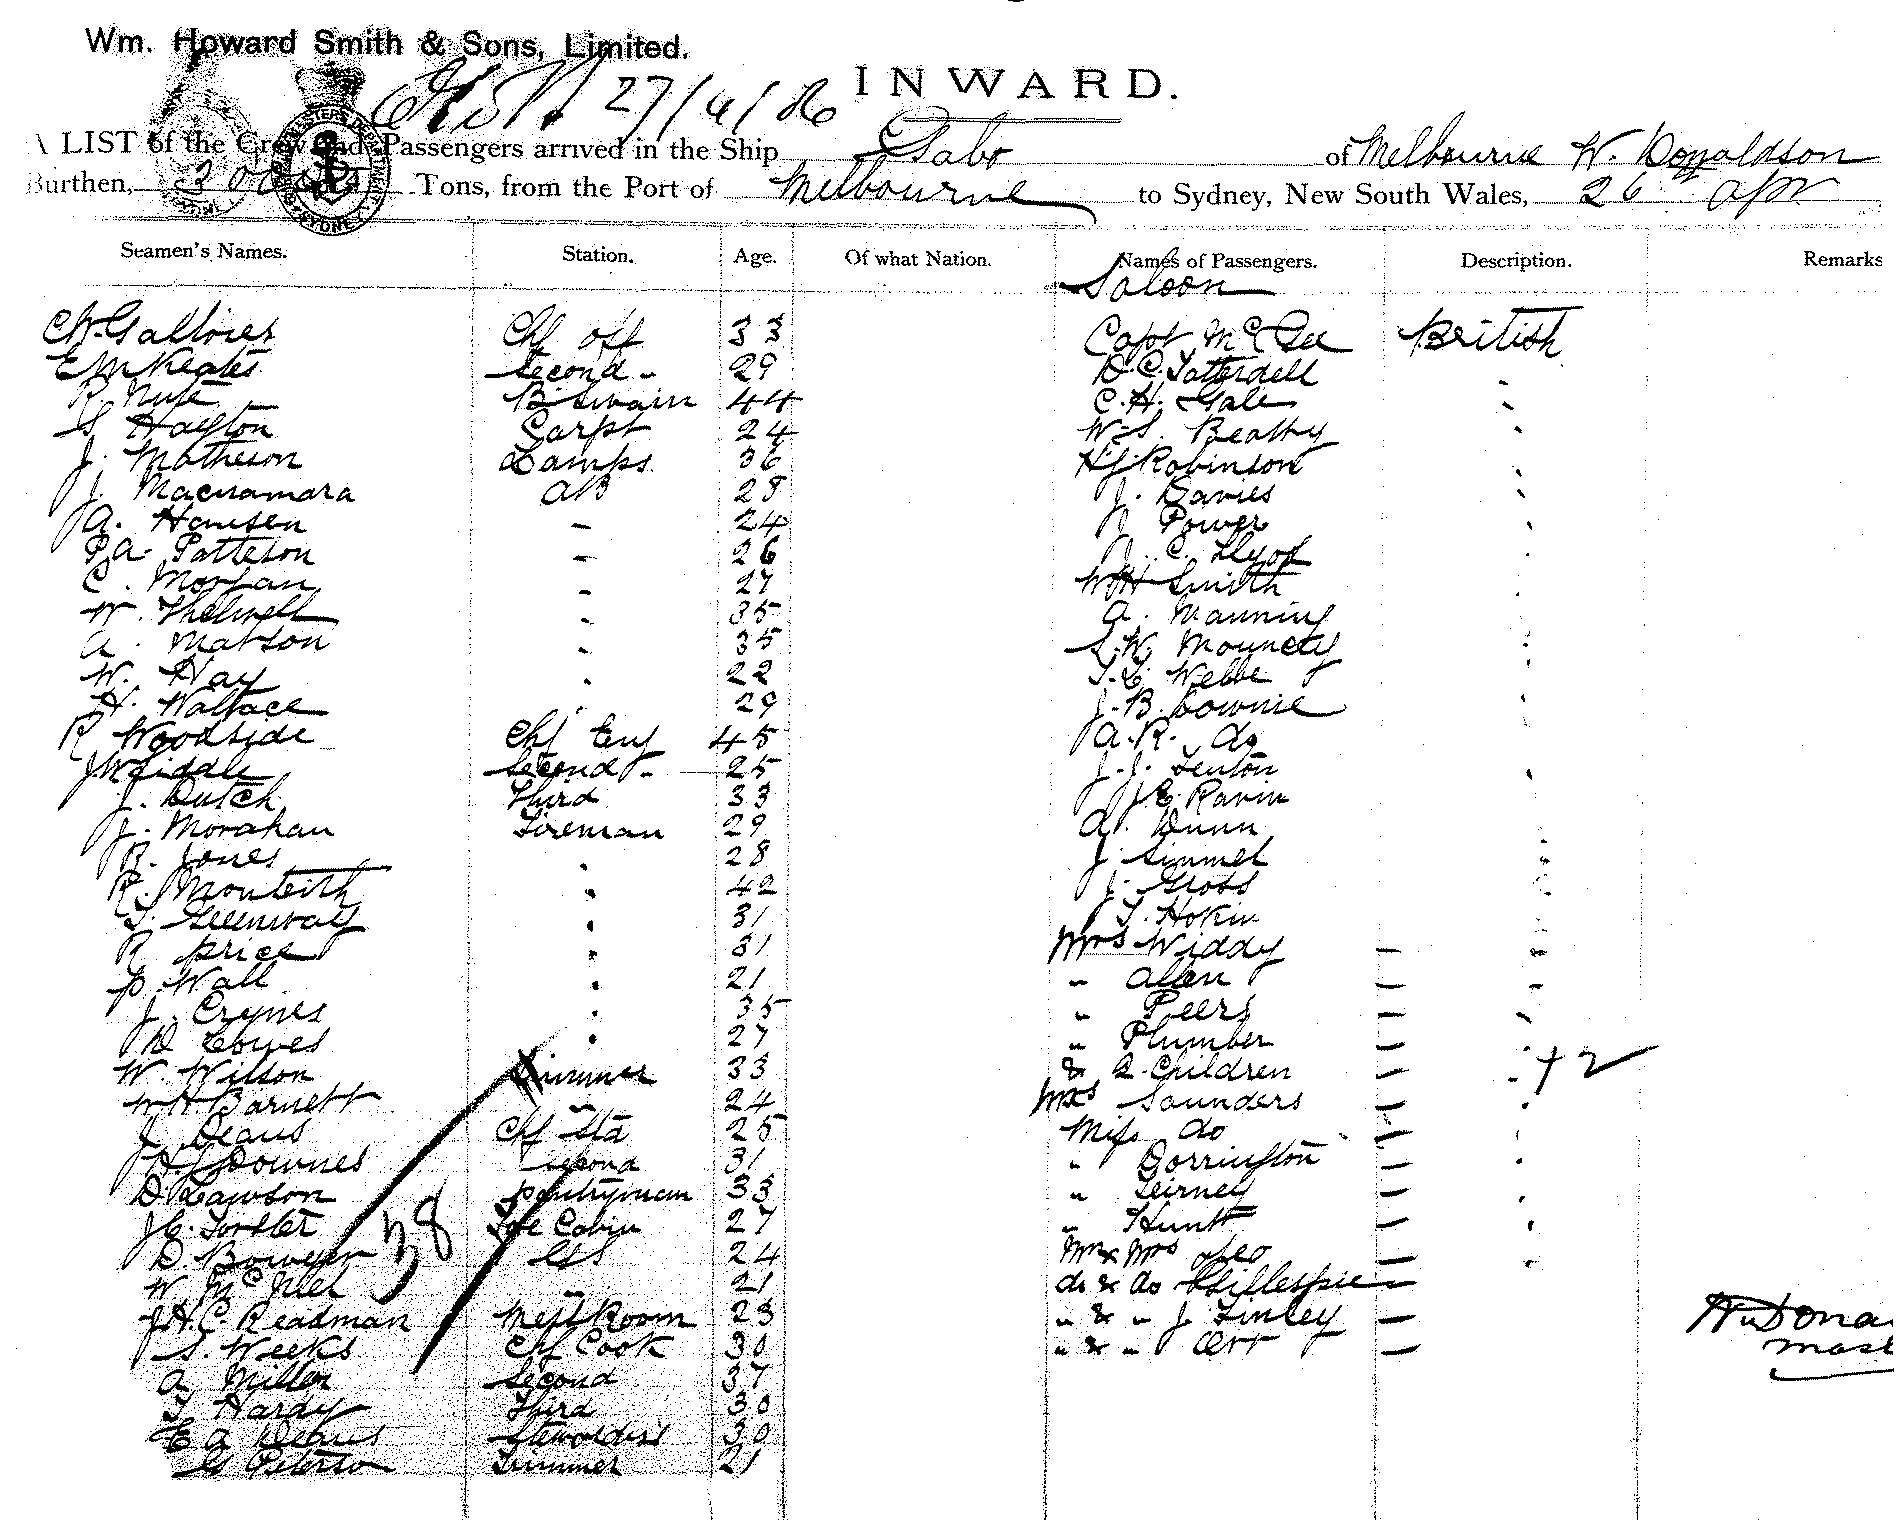 Wm. Howard Smith & Sons, Limited.
27/4/86 INWARD.
A LIST of the Crew and Passengers arrived in the Ship Gabo of Melbourne W. Donaldson
Burthen, Tons, from the Port of Melbourne to Sydney, New South Wales, 26 Apr
Seamen's Names. Station. Age. Of what Nation. Names of Passengers. Description. Remarks
Saloon
Chf off 33 Capt McGee British
E M Keates Second - 29 D C Tatterdell
R. Nute B Swain 44 C. H. Gale
S Halgton Carpt 24 W. S. Beatty
J. Matheson Lamps 36 H J Robinson
J. Macnamara AB 28 J. Davies
A. Hansen - 24 J Power
P A. Patteson - 26 J. C. Llyod
C. Morgan - 27 W H Smith
W. Thelwell - 35 A. Manning
A. Matson - 35 S. W. Mouncey
W. Hay - 22 T. C. Webbe
H. Wallace 29 J. B. Cownie
R Woodside Chf Eng 45 A. R. do
J W Liddle Second - 25 J. J. Lenton
J. Dutch Third 33 J C Ravin
J. Morahan Fireman 29 A. Dunn
R. Jones " 28 J. Simmel
R. Monteith " 42 J. Gross
T. Greenway " 31 T. Hokin
R price " 31 Mrs Widdy -
P. Wall " 21 " Allen -
J. Crynes " 35 " Peers -
D Cowes " 27 " Plumber -
W. Wilson Trimmer 33 & 2 Children - +2
W H Barnett " 24 Mrs Saunders -
J Deans Chf Std 25 Miss do -
H. J Downes Second 31 " Dorrington -
D. Lawson pantryman 33 " Teirney -
J C. Forster Fore Cabin 27 " Hunt -
D. Bowyer GS 24 Mr & Mrs Geo -
W. McNiel 21 do & do Gillespie -
J H. C. Readman Mess Room 23 " & " J Finley -
S. Weeks Chf Cook 30 " & " Orr -
A Miller Second 37
T Hardy Third 30
E A Deans Stewardess 30
G Peterson Trimmer 21
38